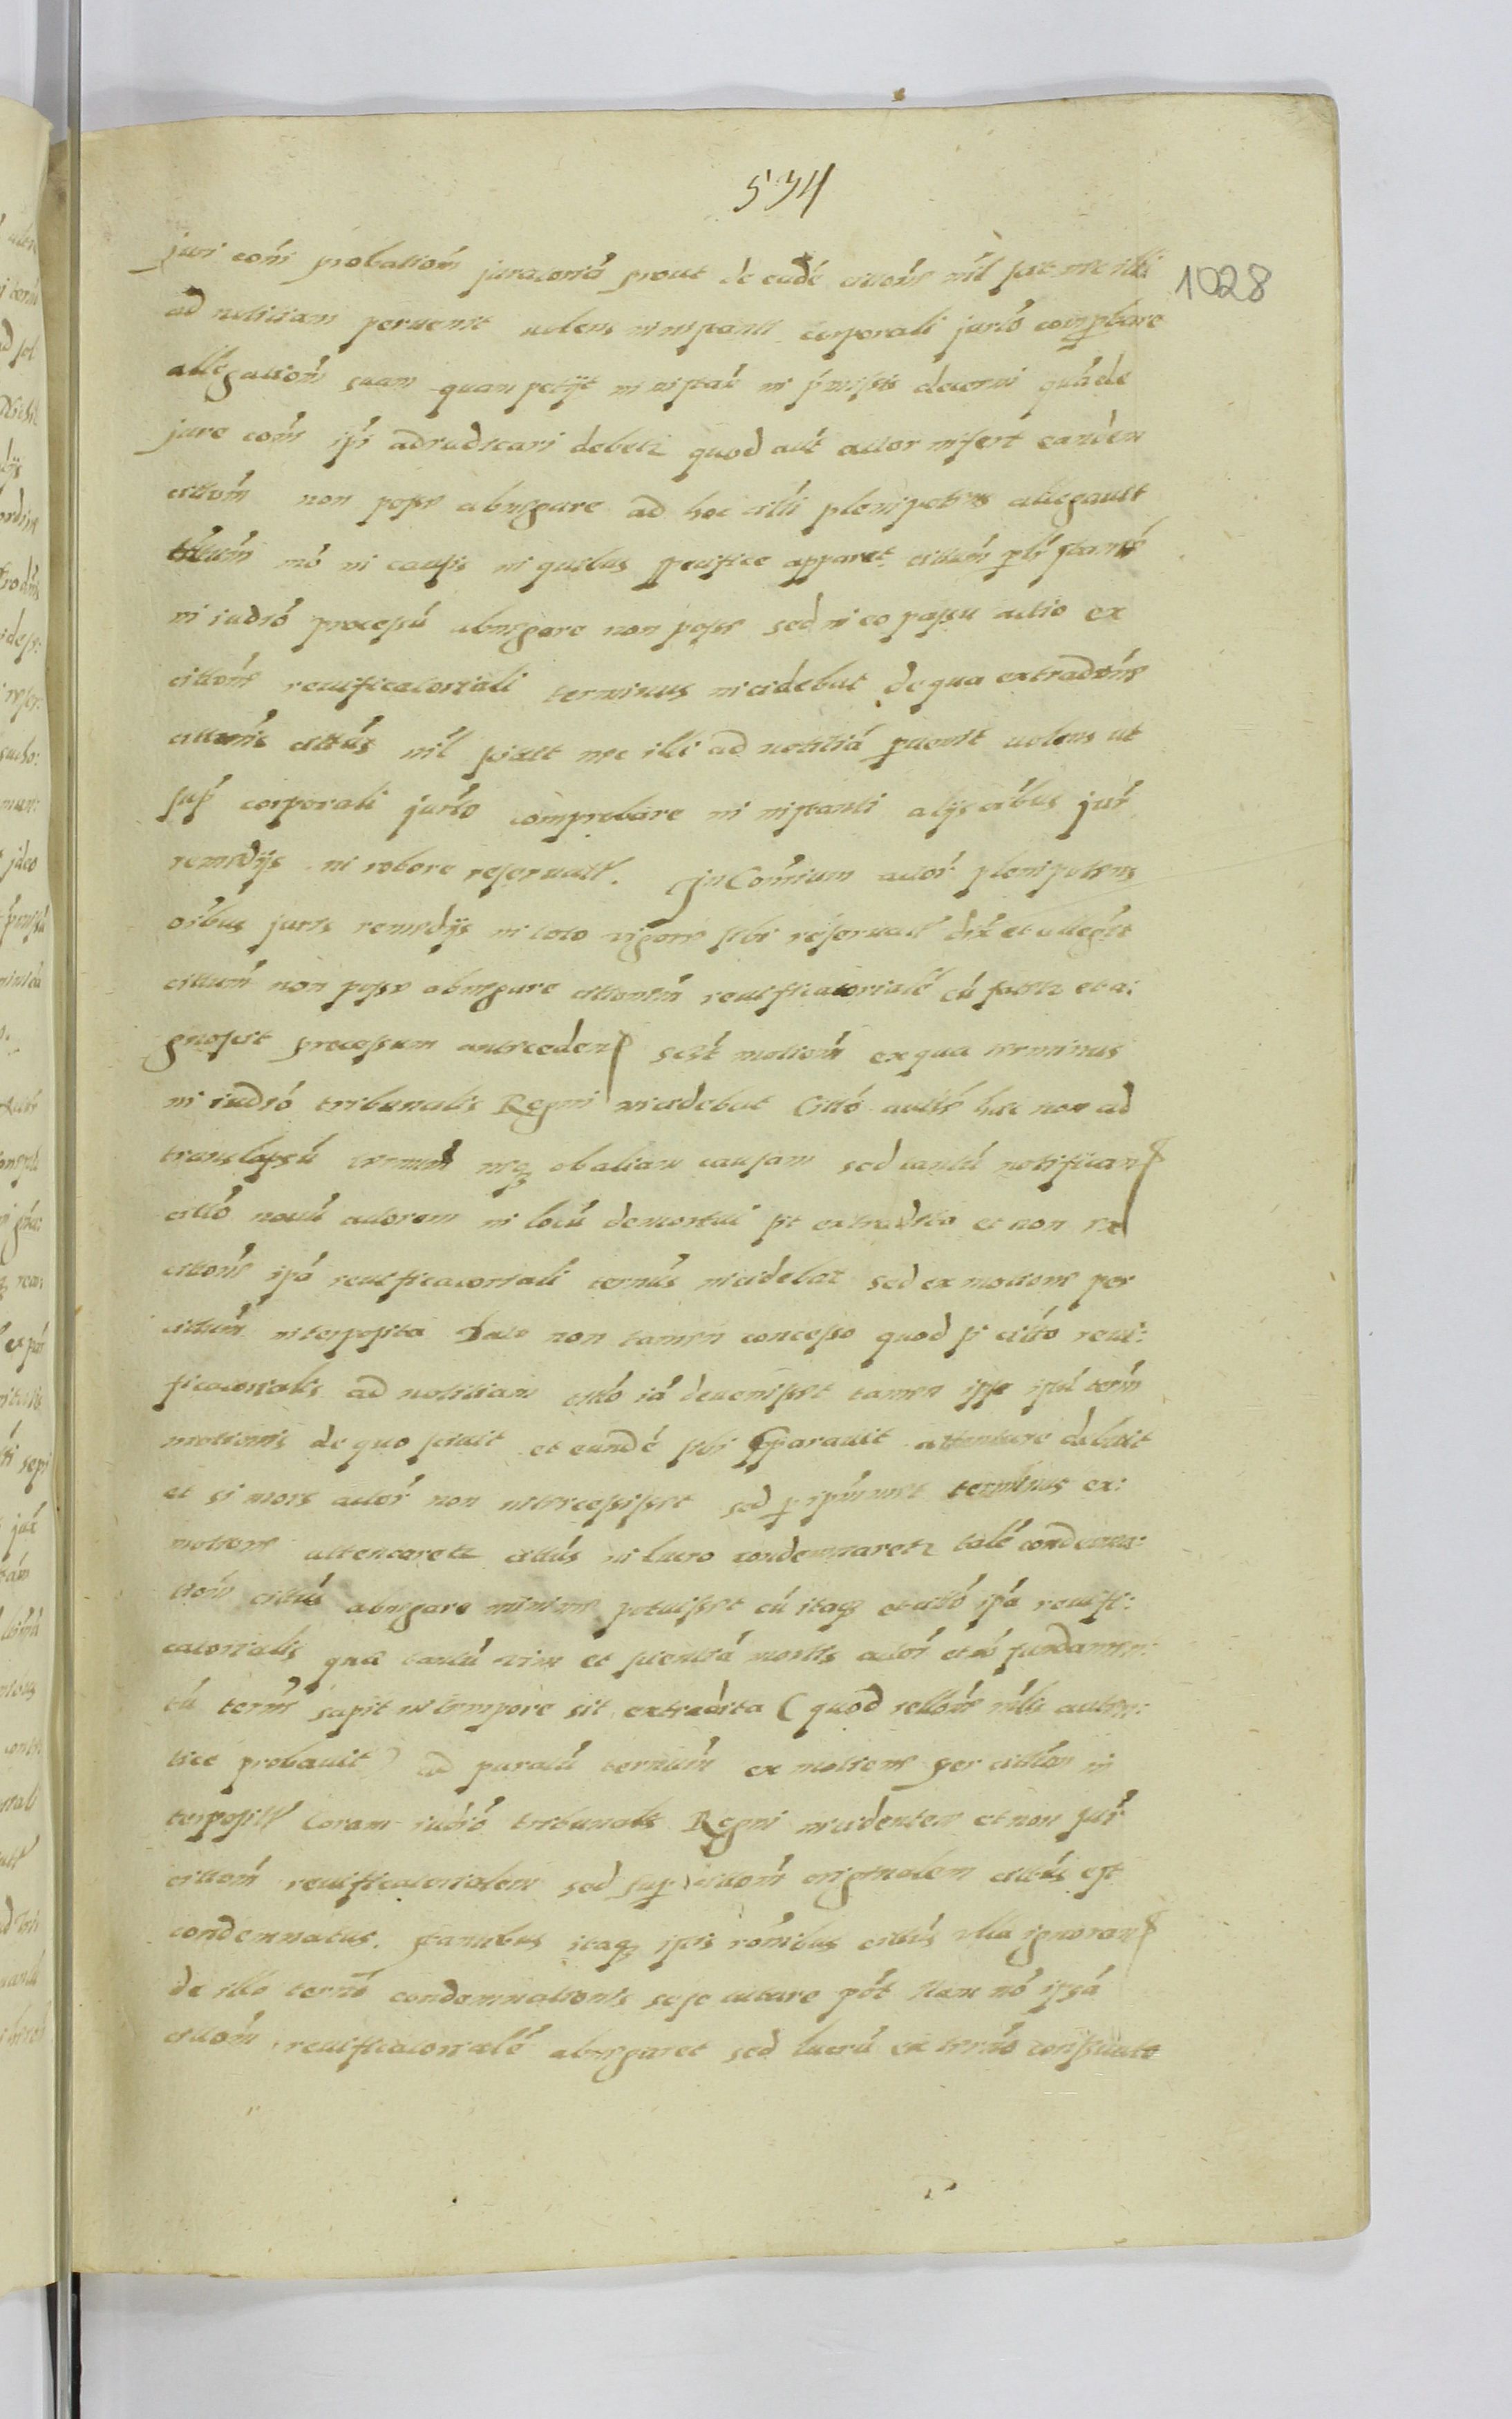 534
1028
juri com̃ probation̄ juratoriá prout de eadé citton̄e nil scit nec illi
ad notitiam peruenit uolens in instanti corporali jurto comprobare
allegation̄ suam quam petijt in instan̄ in p̄missis decerni quá de
jure com̄i ipi adiudicari debetz quod aut̄ actor infert eandem
citton̄ non posse abnegare ad hoc citti plenipotens allegauit
cittum̄ nó in causis in quibus specifice apparet
in iudió processú abnegare non posse sed in eo passu actio ex
citton̄e reuificatoriali terminus incidebat de qua extradon̄e
citton̄is cittús nil sciuit nec illi ad notitiá peruenit uolens ut
sup̄ corporali jurto comprobare in instanti alijs oibus jur̄
remedijs in robore reseruatis. In Contrium actor̄ plenipotens
oibus juris remedijs in toto vigore sibi reseruatis dix̄ et allegat
cittum̄ non posse abnegare cittionem̄ reuificatorialé cú fatetz et a:
gnoscit processum anteceden̄ scilt̄ motion̄ ex qua terminus
in iudió tribunalis Regni incidebat Cittó autem haec non ad
translapsú neq; ob aliam causam sed tantú notifican̄
cittó nouú actorem in locú demortui sit extradita et non ex
citton̄e ipá reuificatoriali termús incidebat sed ex motione per
cittum̄ interposita Dato non tamen concesso quod si cittó reui:
ficatorialis ad notitiam citto iá deuenisset tamen ipse ipsú term̄
motionis de quo sciuit et eundé sibi pparauit attentare debuit
et si mors actor̄ non intercessisset sed p ipsummet terminus ex:
motione attentaretz cittús in lucro condemnaretz talé condemna:
tion̄ cittús abnegare minime potuisset cú itaq; et cittó ipá reuifi:
catorialis quá tantú vim et scientiá mortis actor̄ et nó fundamen:
tú term̄i sapit in tempore sit extradita (quod rellon̄e m̄li auten:
tice probauit) ad paratú termum̄ ex motione per cittum in
terpositis Coram iudió tribunalis Regni incidentem et non sup̄
citton̄ reuificatorialem sed sup citton̄ originalem cittús est
condemnatus. stantibus itaq; ipis ron̄ibus cittús ulla ignoran̄
de illo term̄o condemnationis sese tutare pot̄ Nam nó ipsá
citton̄ reuificatorialé abnegaret sed lucrú ex term̄o consecuto